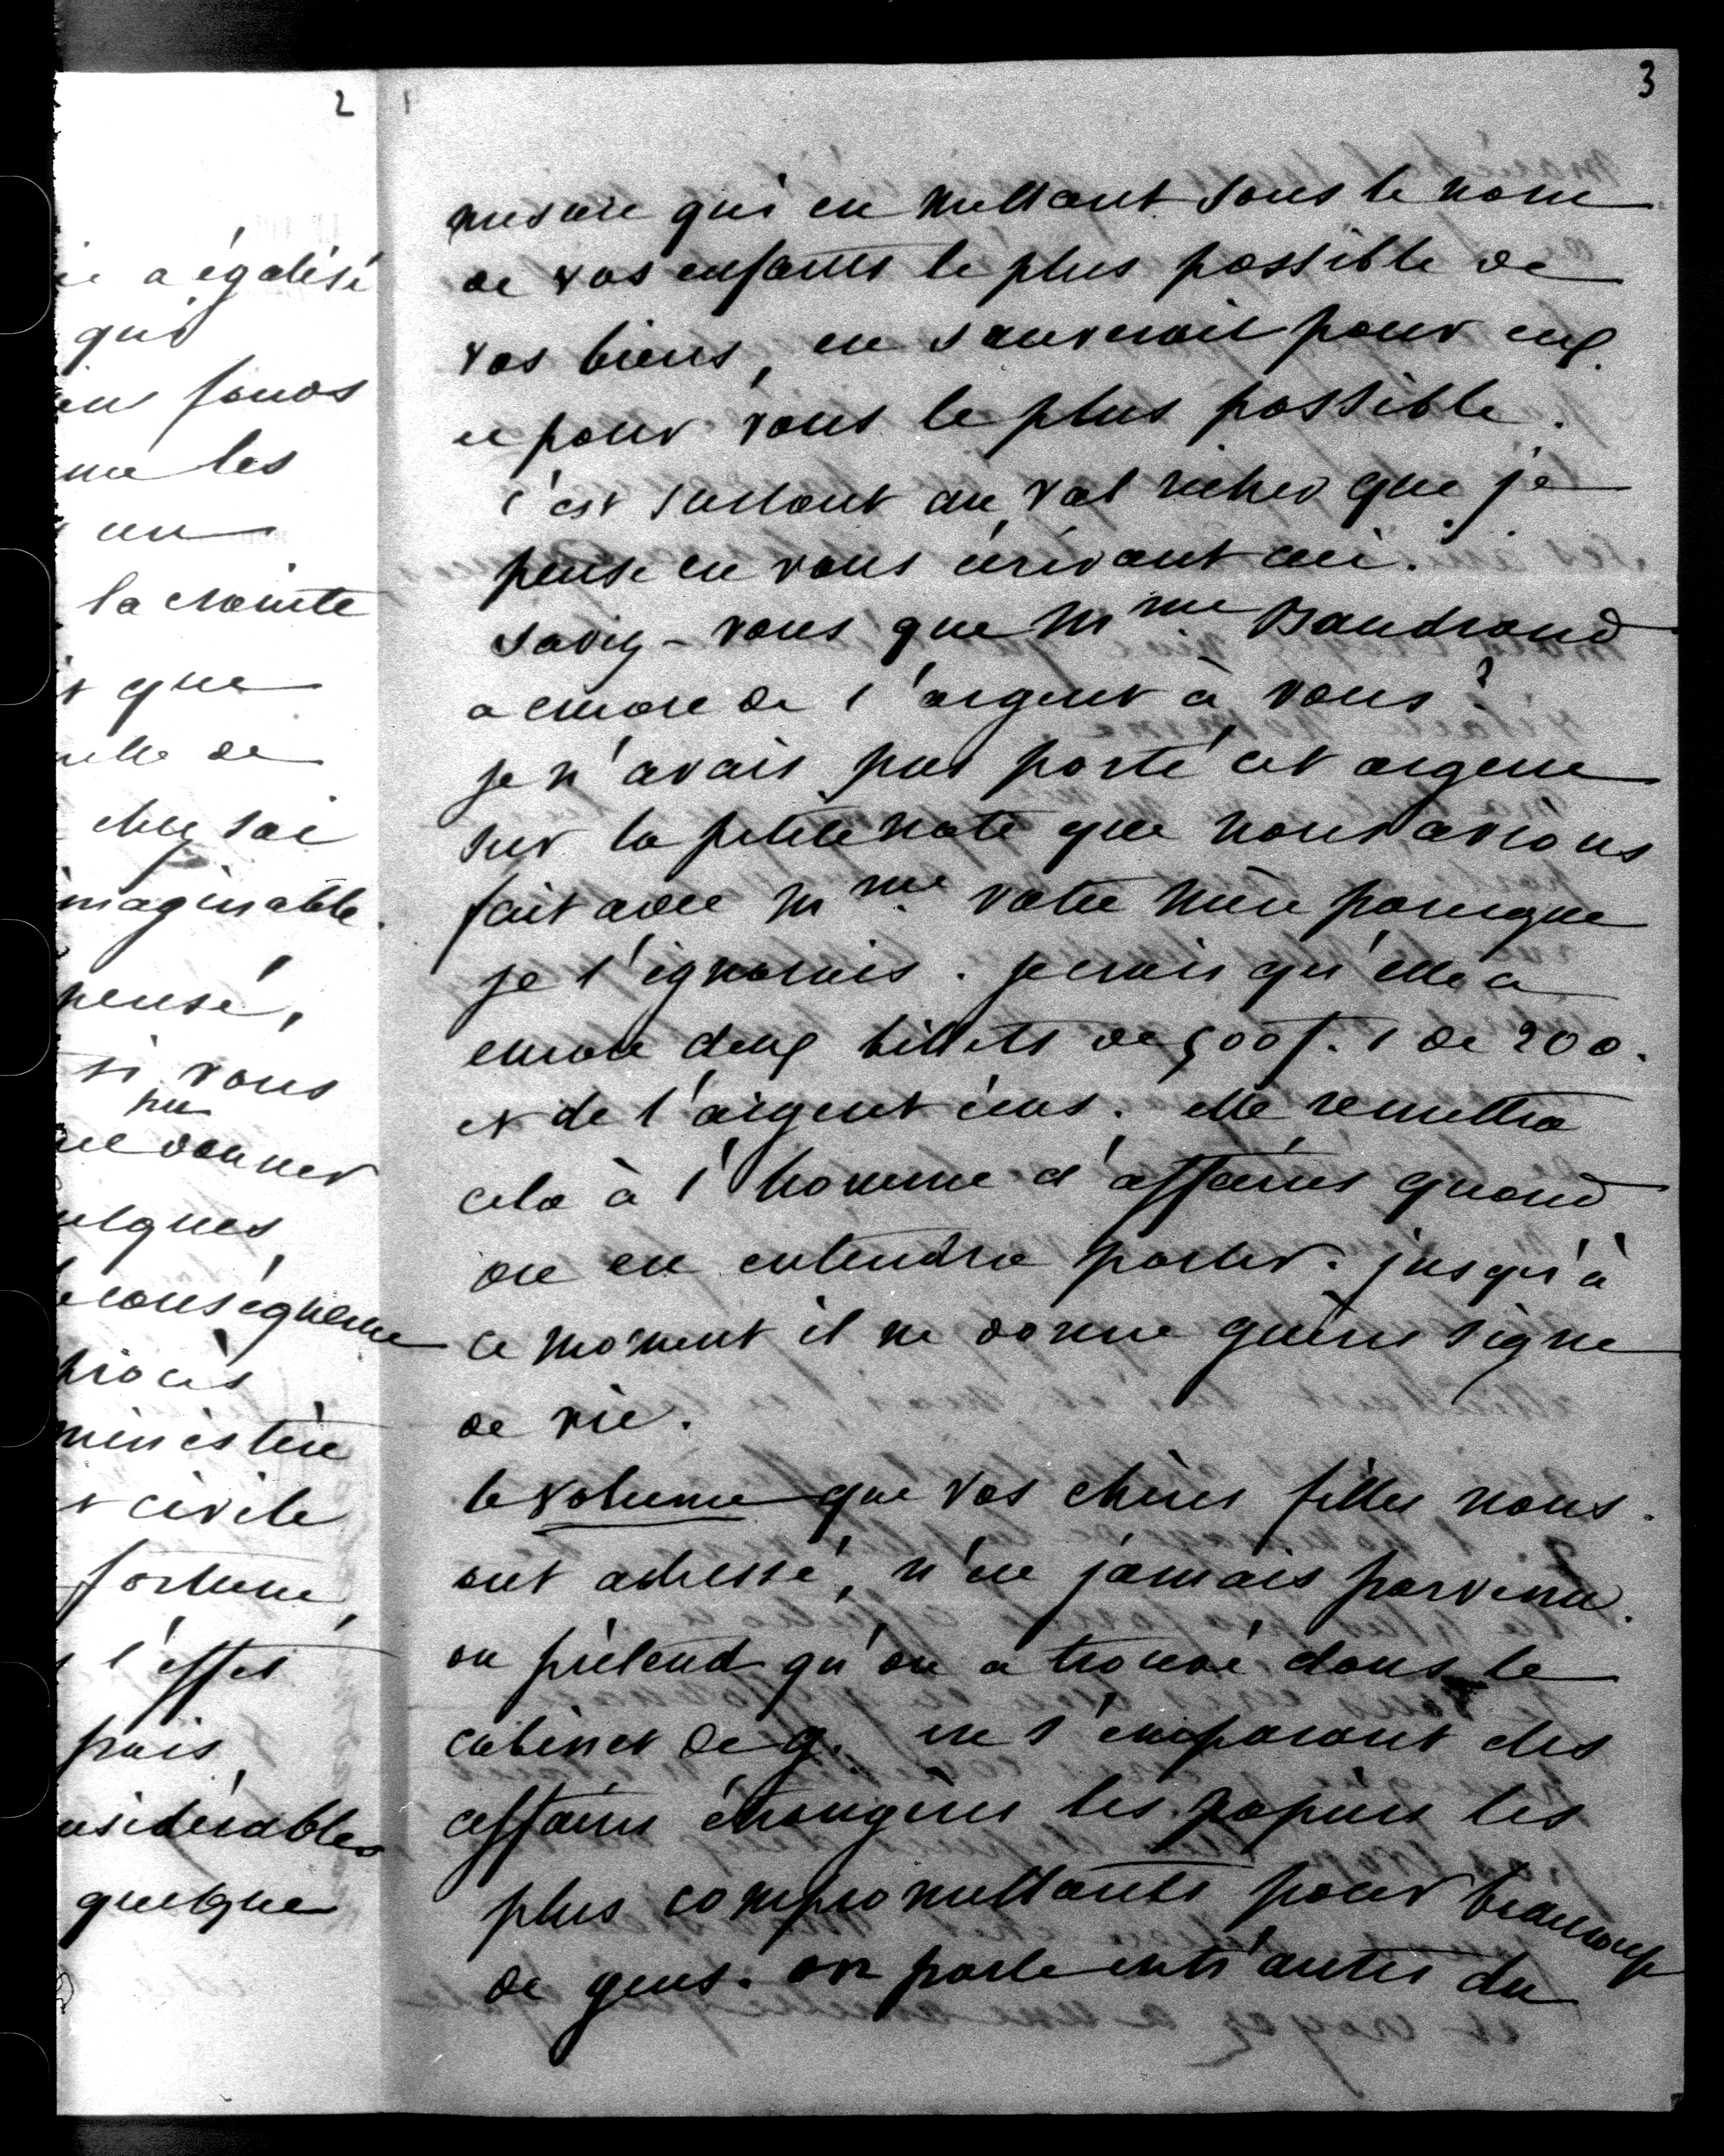 2
ie a égalisé
qui
fonds
me les
un
la crainte
que
elle de
chez soi
imaginable.
pensé,
si vous
pu
donner
elques
conséquence
procès
ministère
civile
fortune,
l'effet
frais
nsidérables
quelque
3
mesure qui en mettant sous le nom
de vos enfants le plus possible de
vos biens, en sauverait pour eux
et pour vous le plus possible.
c'est surtout au Val richer que je
pense en vous écrivant ceci.
Savez-vous que Mme Baudrand
a encore de l'argent à vous?
je n'avais pas porté cet argent
sur la petite note que nous avions
fait avec Mme votre mère parceque
je l'ignorais. je crois qu'elle a
encore deux billets de 500 f. 1 de 200.
et de l'argent écus. elle remettra
cela à l'homme d'affaires quand
on en entendra parler. jusqu'à
ce moment il ne donne guères signe
de vie.
le volume que vos chères filles nous
ont adressé, n'est jamais parvenu.
on prétend qu'on a trouvé dans le
cabinet de g. en s'emparant des
affaires étrangères les papiers les
plus compromettants pour beaucoup
de gens. on parle entr'autres du